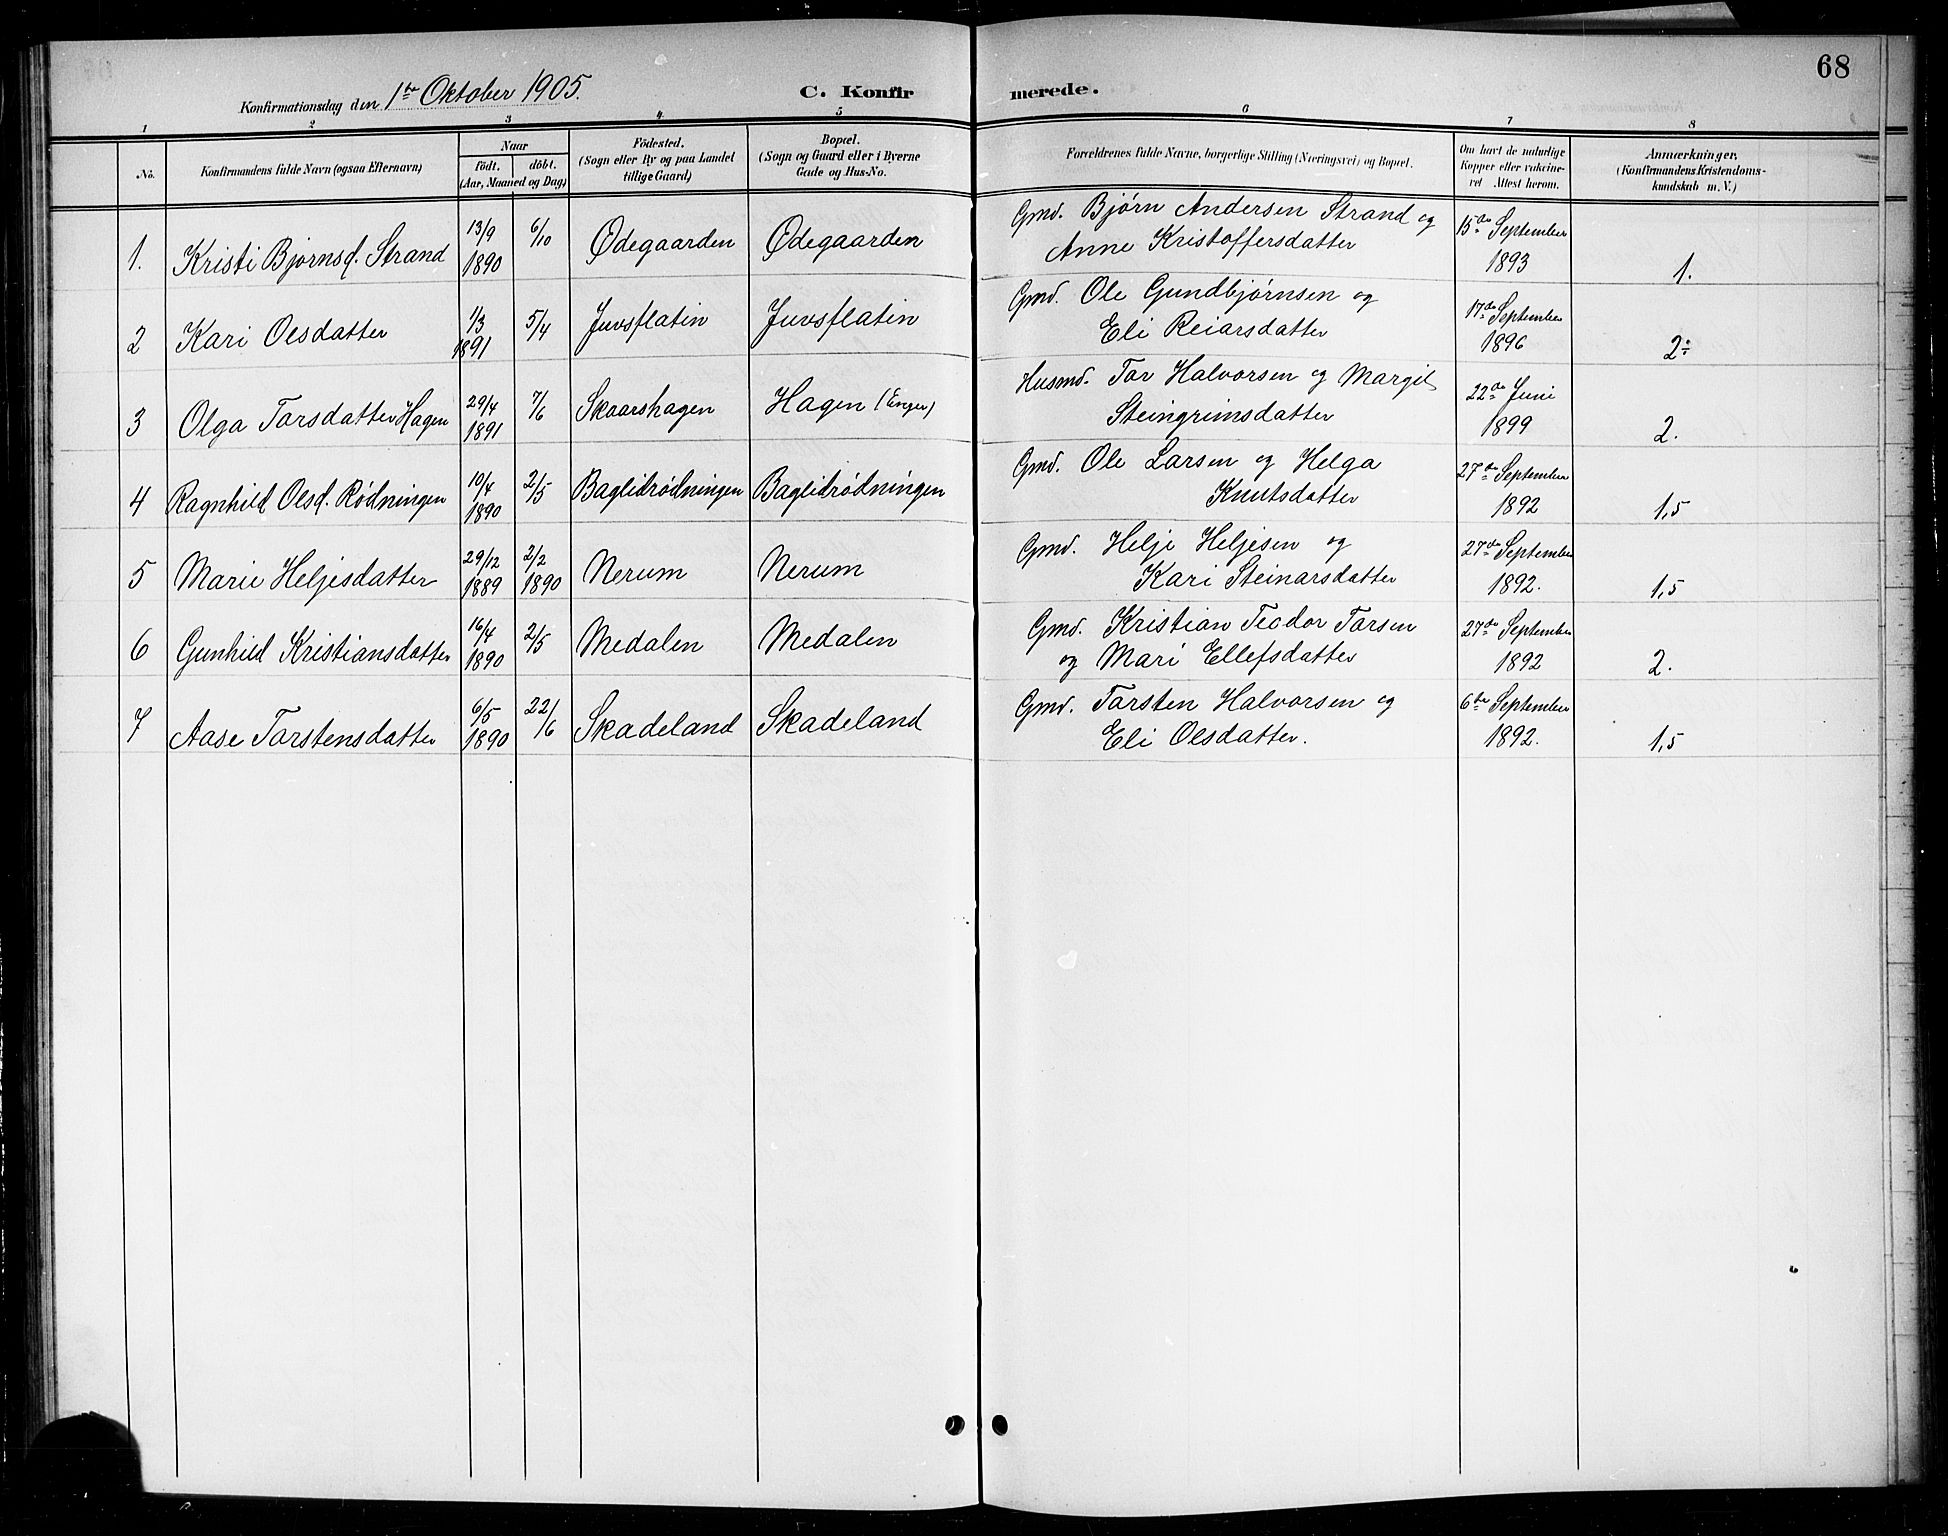 68
Konfirmationsdag den 1ste Oktober 1905.
C. Konfirmerede.
1 2 3 4 5 6 7 8
No.
Konfirmandens fulde Navn (ogsaa Efternavn)
Naar
födt. döbt.
(Aar, Maaned og Dag)
Födested.
(Sogn eller By og paa Landet
tillige Gaard)
Bopæl.
(Sogn og Gaard eller i Byerne
Gade og Hus-No.
Forældrenes fulde Navne, borgerlige Stilling (Næringsvei) og Bopæl.
Om havt de naturlige
Kopper eller vakcine-
ret Attest herom.
Anmærkninger.
(Konfirmandens Kristendoms-
kundskab m. V.)
1. Kristi Bjørnsd. Strand 13/9 1890 6/10 Ødegaarden Ødegaarden Gmd. Bjørn Andersen Strand og
Anne Kristoffersdatter 15de September 1893 1.
2 Kari Olsdatter 1/3 1891 5/4 Juvsflatin Juvsflatin Gmd. Ole Gundbjørnsen og
Eli Reiarsdatter 17de September 1896 2÷
3 Olga Torsdatter Hagen 29/4 1891 7/6 Skaarshagen Hagen (Enger) Husmd. Tor Halvorsen og Margit
Steingrimsdatter 22de Juni 1899 2.
4 Ragnhild Olsd. Rødningen 10/4 1890 2/5 Baglidrødningen Baglidrødningen Gmd. Ole Larsen og Helga
Knutsdatter 27de September 1892 1,5
5 Marie Heljesdatter 29/12 1889 2/2 1890 Nerum Nerum Gmd. Helje Heljesen og
Kari Steinarsdatter 27de September 1892. 1,5
6 Gunhild Kristiansdatter 16/4 1890 2/5 Medalen Medalen Gmd. Kristian Teodor Torsen
og Mari Ellefsdatter 27de September 1892 2.
7 Aase Torstensdatter 6/5 1890 22/6 Skadeland Skadeland Gmd. Torsten Halvorsen og
Eli Olsdatter. 6te September 1892. 1,5